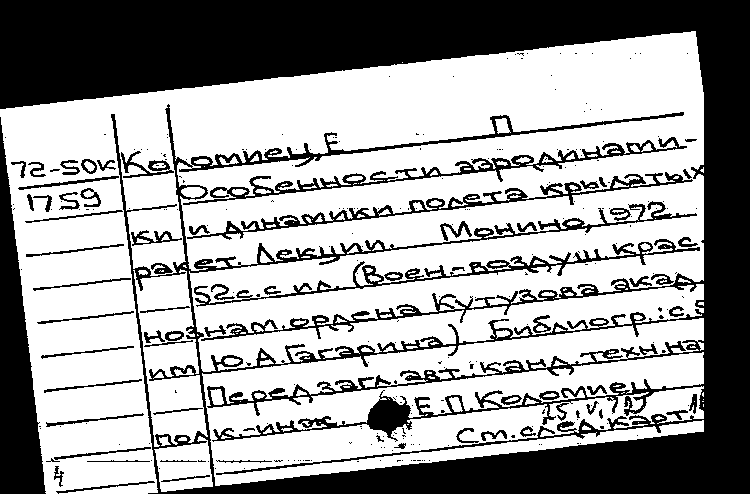 72-50к Коломиец, Е П
1759 Особенности аэродинами-
ки и динамики полета крылатых
ракет. Лекции. Монино, 1972.
52 с. с ил. (Воен.-воздуш. крас-
нознам. ордена Кутузова акад.
им. Ю. А. Гагарина). Библиогр.: с. 5
Перед загл. авт.: канд. техн. на
полк.-инж. Е. П. Коломиец.
Ст. след. карт.
4